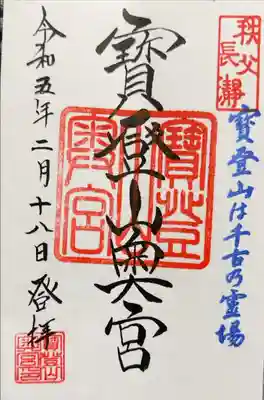 秩父
長瀞
寶登山は千古乃霊場
寶登山奥宮
寶登山
奥宮
令和五年二月十八日登拝